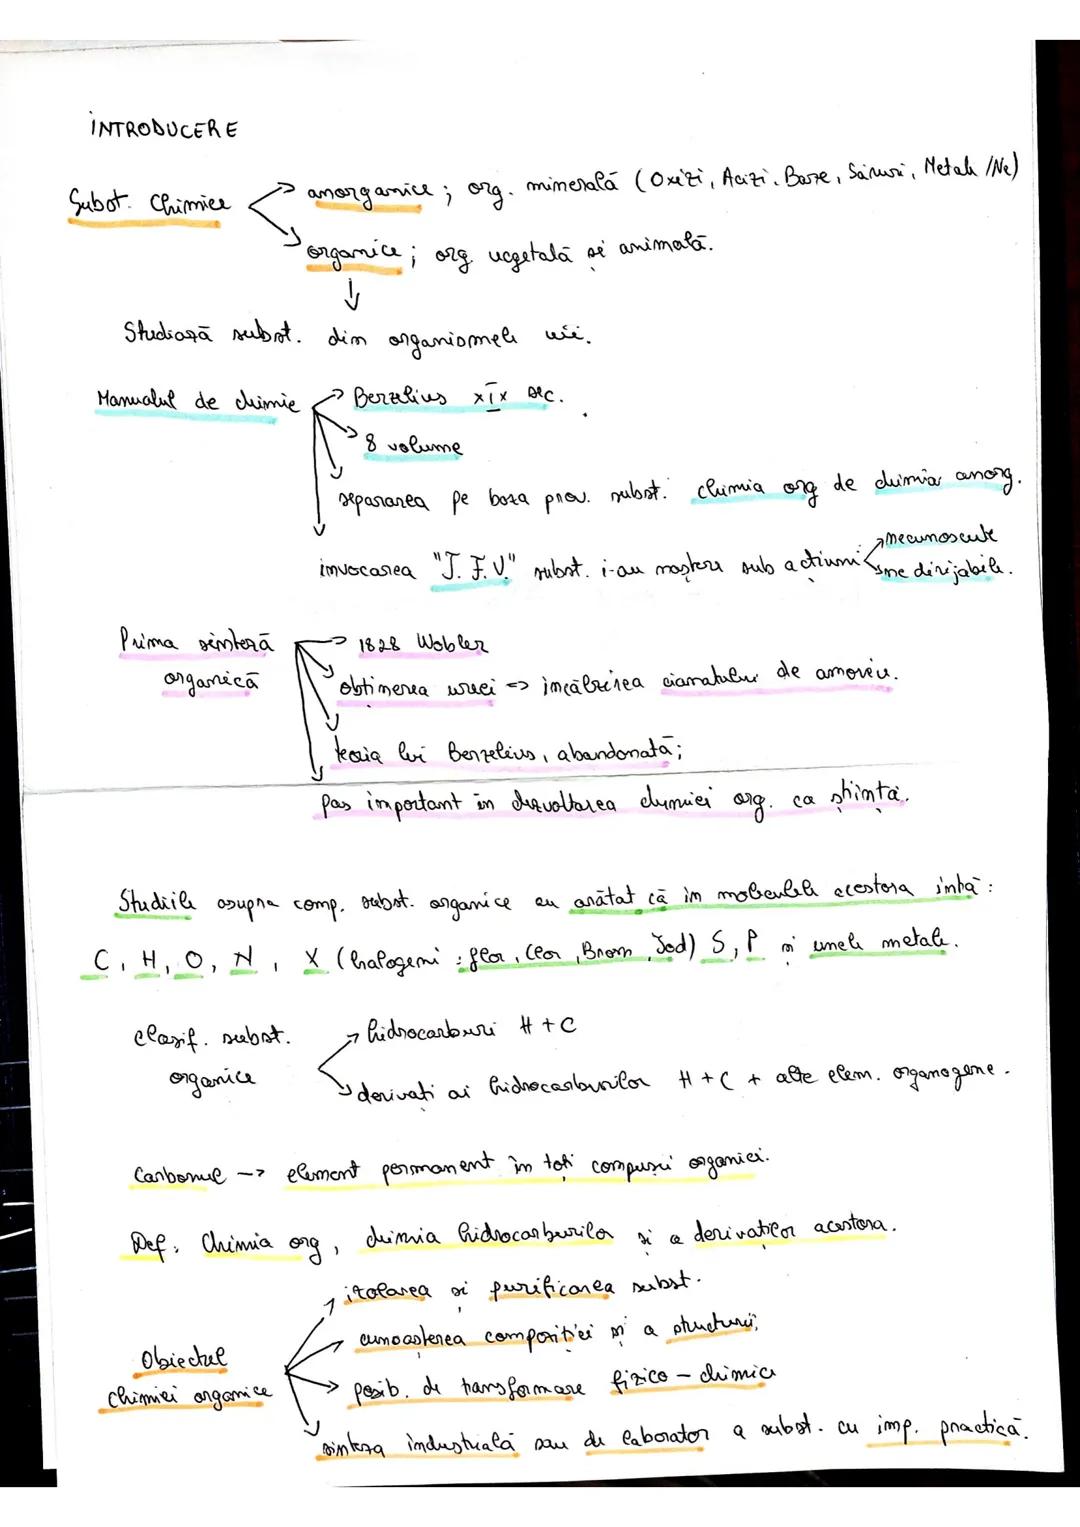 INTRODUCERE
Subst. Chimice → anorganice; org. minerală (Oxizi, Acizi, Baze, Săruri, Metale /Ne)
→ organice; org. vegetală și animală.
↓
Studiază subst. din organismele vii.
Manualul de chimie → Berzelius XIX sec.
→ 8 volume
→ separarea pe baza prov. subst. chimia org de chimia anorg.
→ invocarea "T.F.V." subst. i-au naștere sub acțiuni → necunoscute
→ ne dirijabile.
Prima sinteză → 1828 Wohler
organică → obtinerea ureei => încălzirea cianatului de amoniu.
→ teoria lui Berzelius, abandonată;
→ pas important în dezvoltarea chimiei org. ca știință.
Studiile asupra comp. subst. organice au arătat că în moleculele acestora intră:
C, H, O, N, X (halogeni: flor, Clor, Brom, Iod) S, P și unele metale.
clasif. subst. → hidrocarburi H + C
organice → derivați ai hidrocarburilor H + C + alte elem. organogene.
Carbonul -> element permanent în toți compușii organici.
Def. Chimia org, chimia hidrocarburilor și a derivaților acestora.
→ izolarea și purificarea subst.
→ cunoasterea compoziției și a structurii;
Obiectul → posib. de transformare fizico - chimica
chimiei organice → sinteza industrială sau de laborator a subst. cu imp. practică.